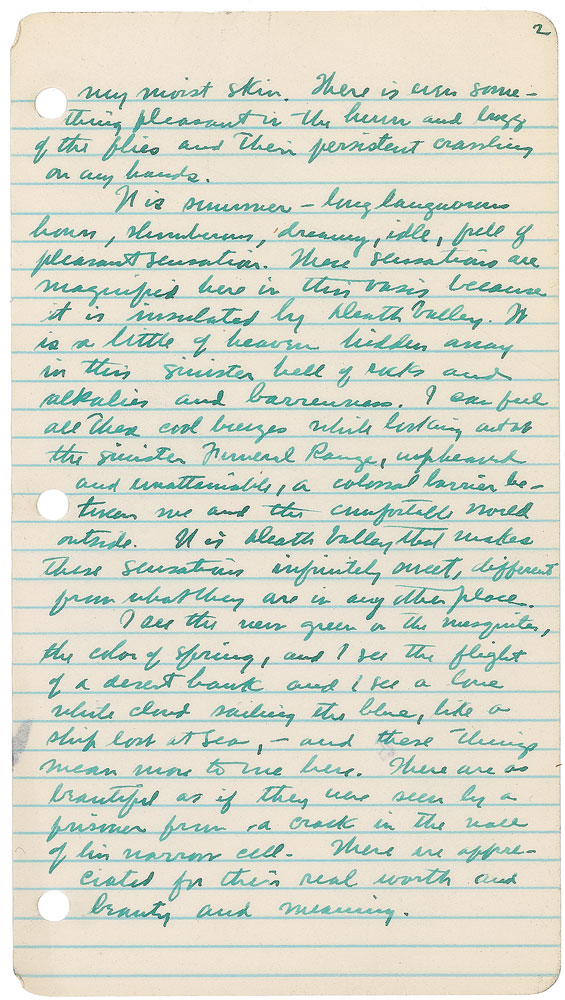 2
my moist skin. There is even some-
thing pleasant in the hum and buzz
of the flies and their persistent crawling
on my hands.
It is summer – long languorous
hours, slumberous, dreamy, idle, full of
pleasant sensation. These sensations are
magnified here in this oasis because
it is insulated by Death Valley. It
is a little of heaven hidden away
in this sinister hell of rocks and
alkalies and barrenness. I can feel
all these cool breezes while looking out at
the sinister Funeral Range, upheaved
and unattainable, a colossal barrier be-
tween me and the comfortable world
outside. It is Death Valley that makes
these sensations infinitely sweet, different
from what they are in any other place.
I see the new green on the mesquites,
the color of spring, and I see the flight
of a desert hawk and I see a lone
white cloud sailing the blue, like a
ship lost at sea, – and these things
mean more to me here. They are as
beautiful as if they were seen by a
prisoner from a crack in the wall
of his narrow cell. There we appre-
ciated for their real worth and
beauty and meaning.